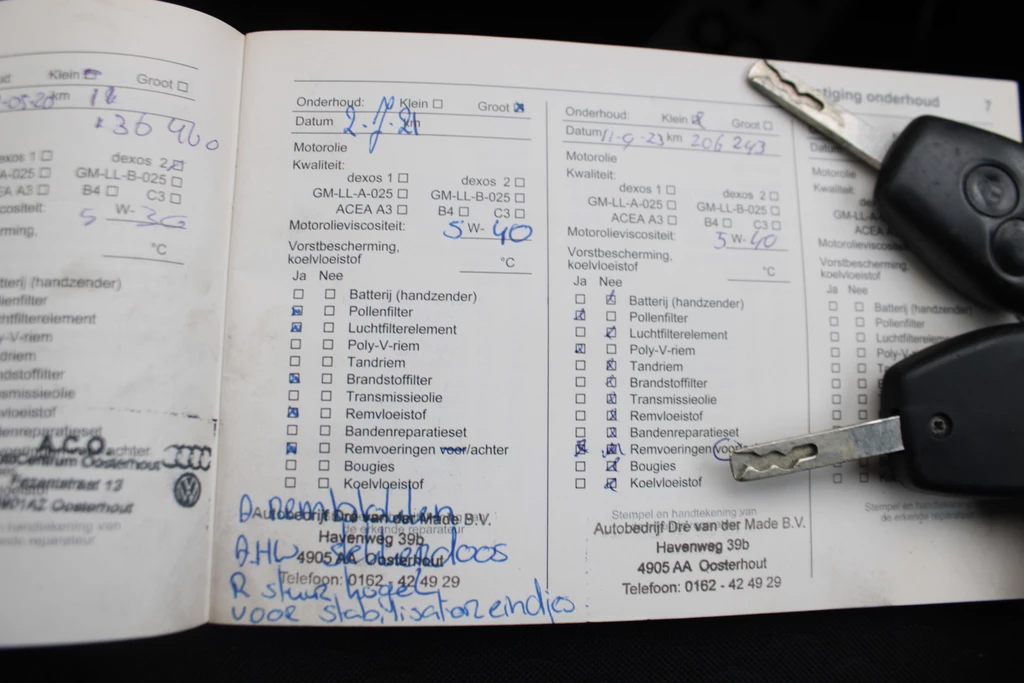 Klein Groot
km
136400
dexos 1 dexos 2
A-025 GM-LL-B-025
A3 B4 C3
5 W-30
°C
(handzender)
Poly-V-riem
A.C.O.
Oosterhout
13
Oosterhout
Onderhoud: Klein Groot
Datum 2-7-21 km
Motorolie
Kwaliteit:
dexos 1 dexos 2
GM-LL-A-025 GM-LL-B-025
ACEA A3 B4 C3
Motorolieviscositeit: 5 W- 40
Vorstbescherming,
koelvloeistof °C
Ja Nee
Batterij (handzender)
Pollenfilter
Luchtfilterelement
Poly-V-riem
Tandriem
Brandstoffilter
Transmissieolie
Remvloeistof
Bandenreparatieset
Remvoeringen voor/achter
Bougies
Koelvloeistof
Autobedrijf Dré van der Made B.V.
Havenweg 39b
4905 AA Oosterhout
Telefoon: 0162 - 42 49 29
R stuurkogel
voor stabilisatoreindjes.
Onderhoud: Klein Groot
Datum 11-9-23 km 206 243
Motorolie
Kwaliteit:
dexos 1 dexos 2
GM-LL-A-025 GM-LL-B-025
ACEA A3 B4 C3
Motorolieviscositeit: 5 W- 40
Vorstbescherming,
koelvloeistof °C
Ja Nee
Batterij (handzender)
Pollenfilter
Luchtfilterelement
Poly-V-riem
Tandriem
Brandstoffilter
Transmissieolie
Remvloeistof
Bandenreparatieset
Remvoeringen voor
Bougies
Koelvloeistof
Stempel en handtekening van
de erkende reparateur
Autobedrijf Dré van der Made B.V.
Havenweg 39b
4905 AA Oosterhout
Telefoon: 0162 - 42 49 29
tiging onderhoud 7
Motorolie
Kwaliteit:
GM-LL-A
ACEA
Motorolieviscositeit
Vorstbescherming,
koelvloeistof
Ja Nee
Batterij (handzender)
Pollenfilter
Luchtfilterelement
Poly-V-